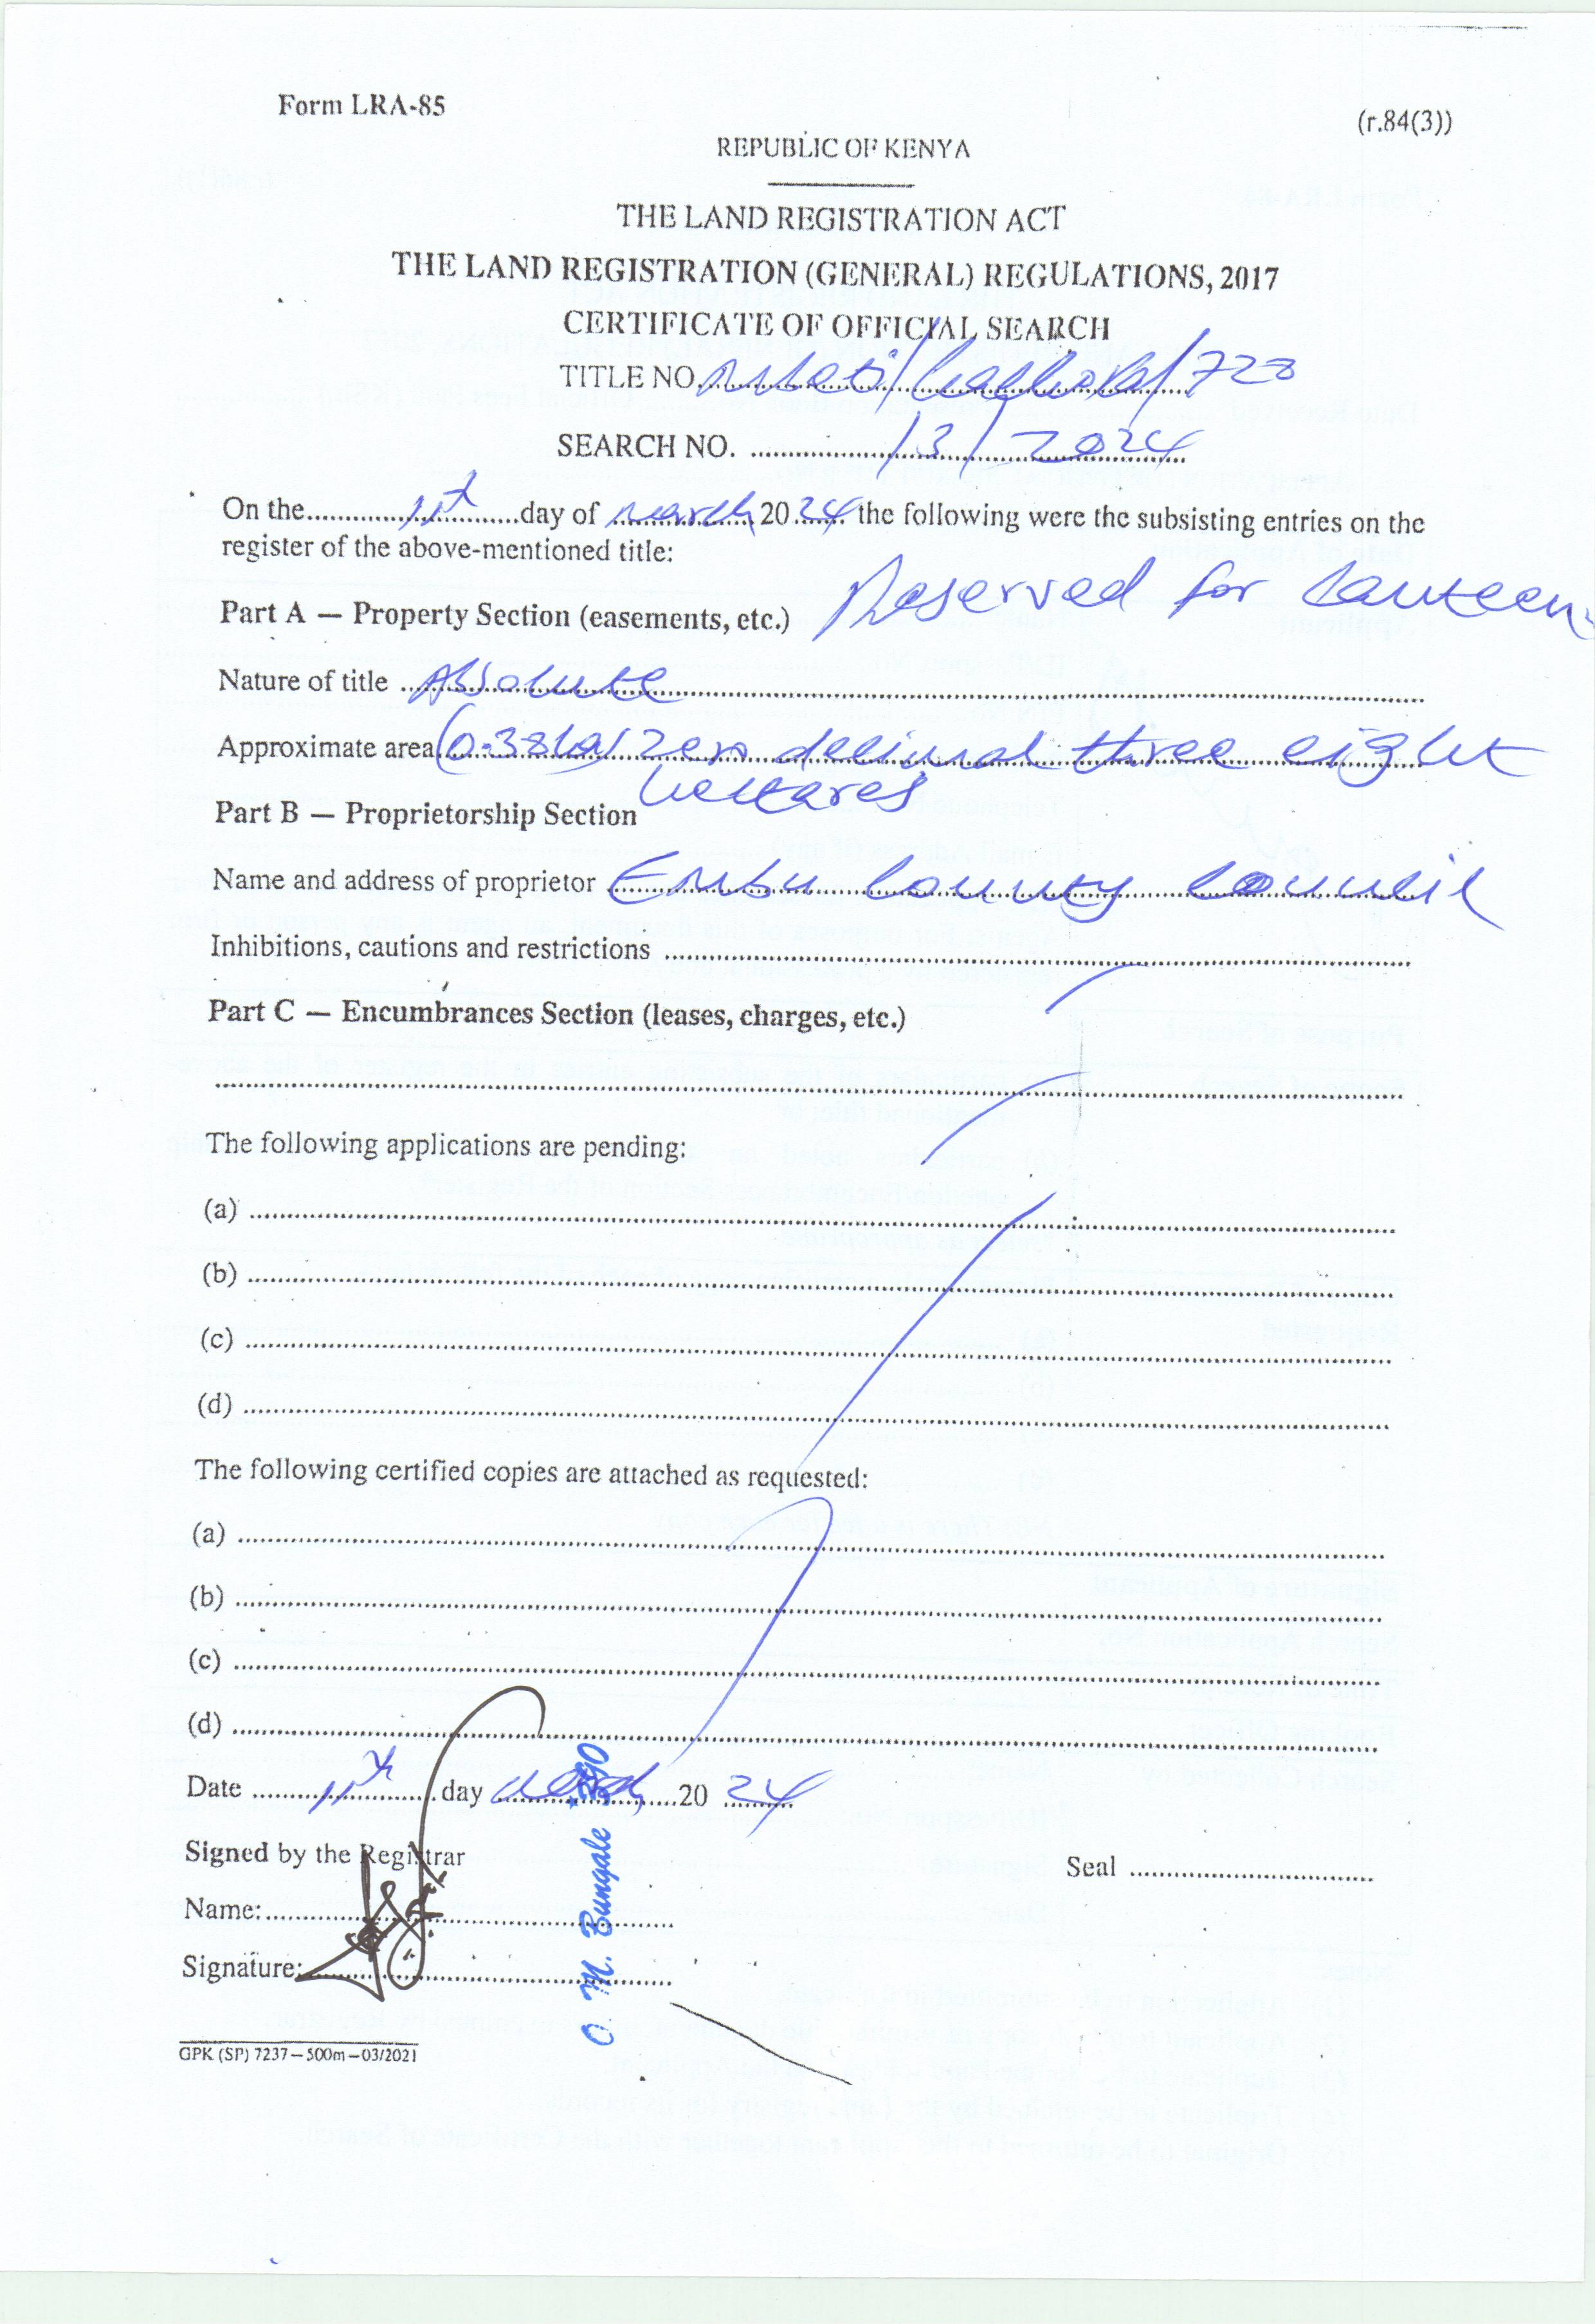 Form LRA-85
(r.84(3))
REPUBLIC OF KENYA
THE LAND REGISTRATION ACT
THE LAND REGISTRATION (GENERAL) REGULATIONS, 2017
CERTIFICATE OF OFFICIAL SEARCH
TITLE NO. /728
SEARCH NO. ........ /3/2024
On the........11th........day of march 2024 the following were the subsisting entries on the
register of the above-mentioned title:
Part A — Property Section (easements, etc.) Reserved for Canteen
Nature of title ..Absolute........
Approximate area (0.38ha) zero decimal three eight
hectares
Part B — Proprietorship Section
Name and address of proprietor Embu County Council
Inhibitions, cautions and restrictions ........
Part C — Encumbrances Section (leases, charges, etc.)
The following applications are pending:
(a) ........
(b) ........
(c) ........
(d) ........
The following certified copies are attached as requested:
(a) ........
(b) ........
(c) ........
(d) ........
Date ....11th....day march 20 24
Signed by the Registrar
Seal ........
Name:........
Signature:........
O. M. Bungale
GPK (SP) 7237—500m—03/2021